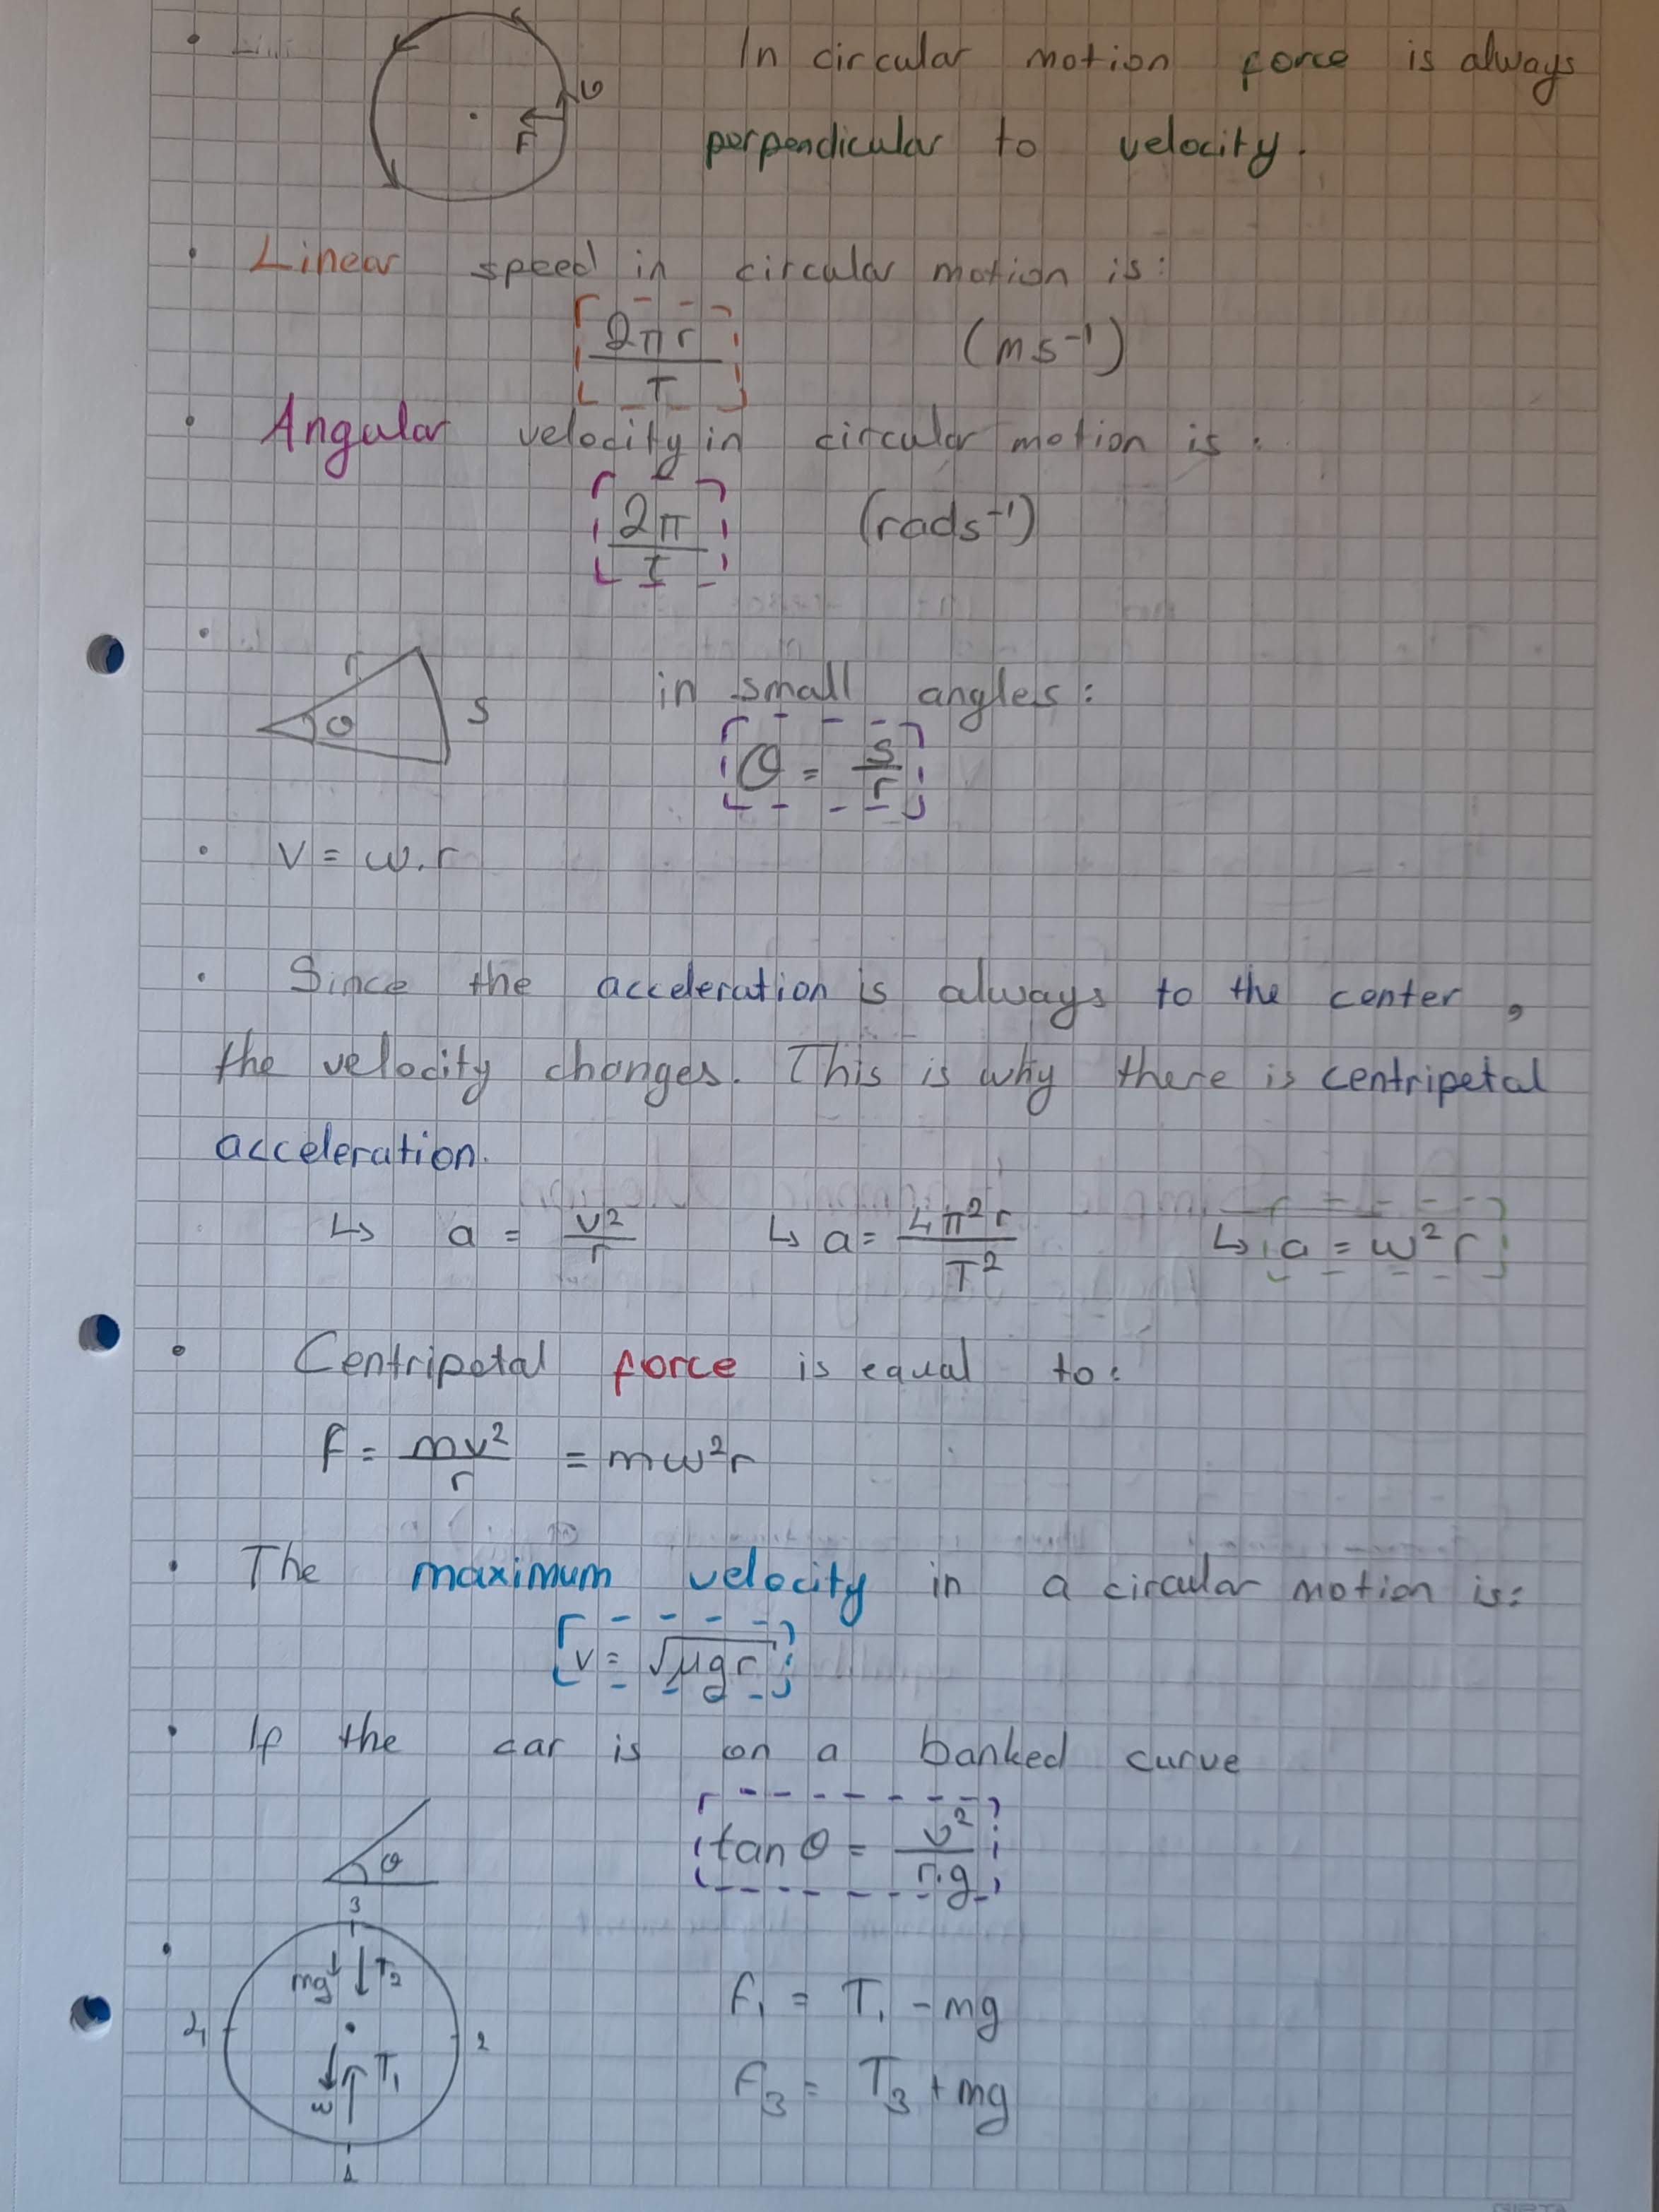 In circular motion force is always
υ
F
perpendicular to velocity.
Linear speed in circular motion is:
2πr / T (ms⁻¹)
Angular velocity in circular motion is:
2π / T (rads⁻¹)
r
θ
s
in small angles:
θ = s / r
v = ω.r
Since the acceleration is always to the center,
the velocity changes. This is why there is centripetal
acceleration.
↳ a = v² / r ↳ a = 4π²r / T² ↳ a = ω²r
Centripetal force is equal to:
F = mv² / r = mω²r
The maximum velocity in a circular motion is:
v = √μgr
If the car is on a banked curve
θ
tan θ = υ² / r.g
3
mg T₃
4 2
ω T₁
1
F₁ = T₁ - mg
F₃ = T₃ + mg